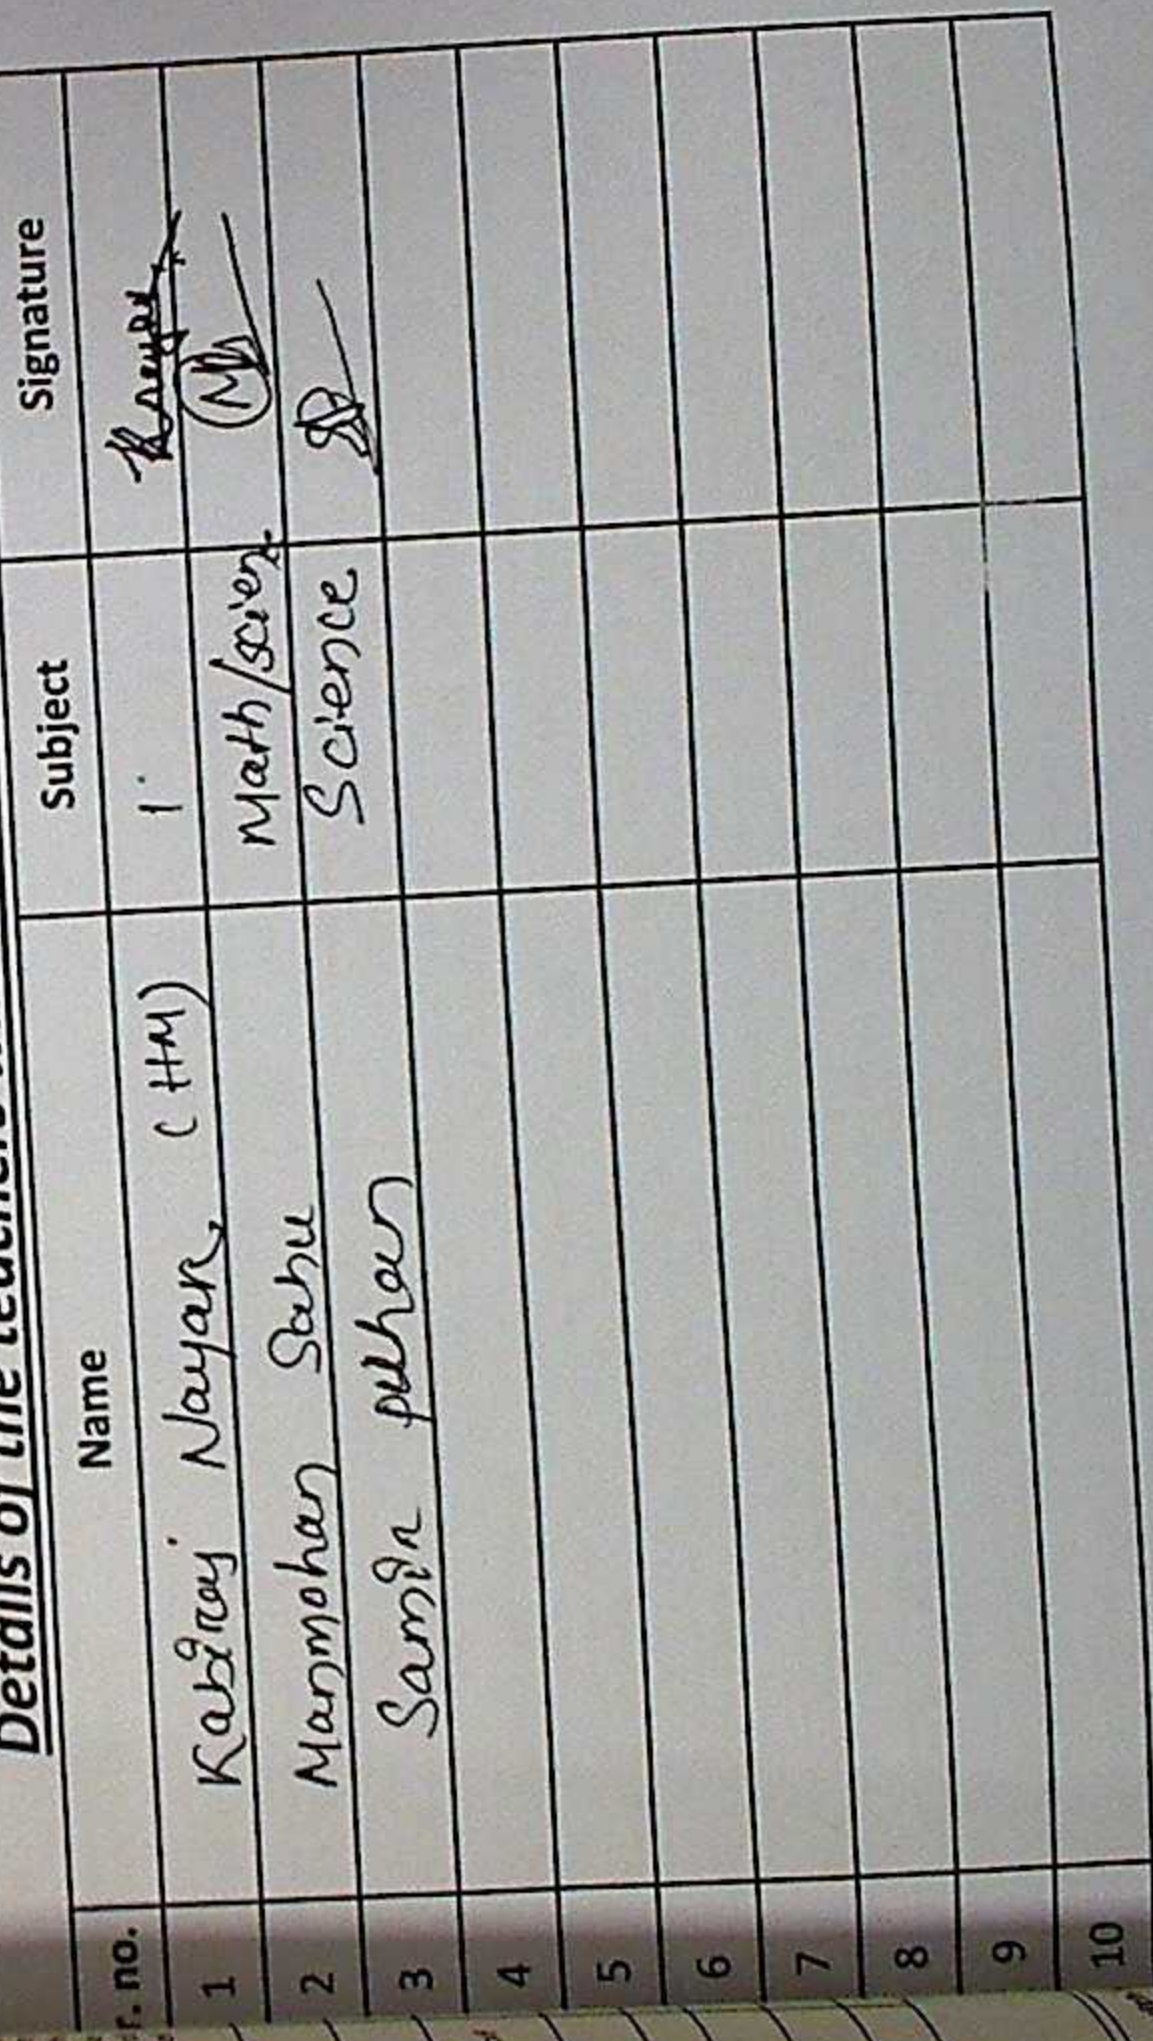 Details of the
r. no. Name Subject Signature
1 Kabiraj Nayak, (HM) 1.
2 Manmohan Sahu Math/scien.
3 Samir pukhan Science
4
5
6
7
8
9
10